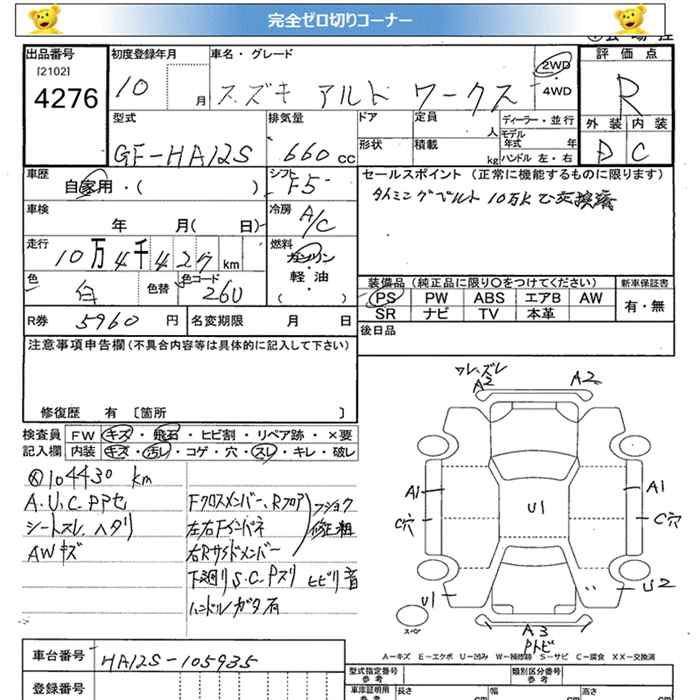 完全ゼロ切りコーナー
出品番号 初度登録年月 車名・グレード 評価点
[2102]
4276 10 月 スズキ アルト ワークス 2WD 4WD R
型式 排気量 ドア 定員 人 ディーラー・並行 外装 内装
GF-HA12S 660 cc 形状 積載 kg モデル年式 年 ハンドル 左・右 D C
車歴 シフト セールスポイント (正常に機能するものに限ります)
自家用・( ) F5 タイミングベルト 10万kで交換済
車検 年 月( 日) 冷房 A/C
走行 10万4千427km 燃料 ガソリン・軽油 ( )
色 白 色替 色コード 26U
装備品 (純正品に限り○をつけてください) 新車保証書
PS PW ABS エアB AW 有・無
SR ナビ TV 本革
R券 5960 円 名変期限 月 日
後日品
注意事項申告欄(不具合内容等は具体的に記入して下さい)
修復歴 有 [箇所 ]
検査員 FW キズ・飛石・ヒビ割・リペア跡・×要
記入欄 内装 キズ・汚レ・コゲ・穴・スレ・キレ・破レ
104430 km
A.U.C.PPセ
シートスレ、ヘタリ
AWキズ
Fクロスメンバー、Rフロア
左右Fインパネ
右Rサイドメンバー
フショク
修正粗
下廻りS.C.Pスリ ヒビリ音
ハンドルガタ有
ワレ、ズレ
A2 A2
A1 U1 A1
C穴 C穴
U1 U2
スペア A3
Pトビ
A-キズ E-エクボ U-凹み W-補修跡 S-サビ C-腐食 XX-交換済
車台番号 HA12S-105935
登録番号
型式指定番号 参考 類別区分番号 参考
車庫証明用 参考 長さ cm 幅 cm 高さ cm